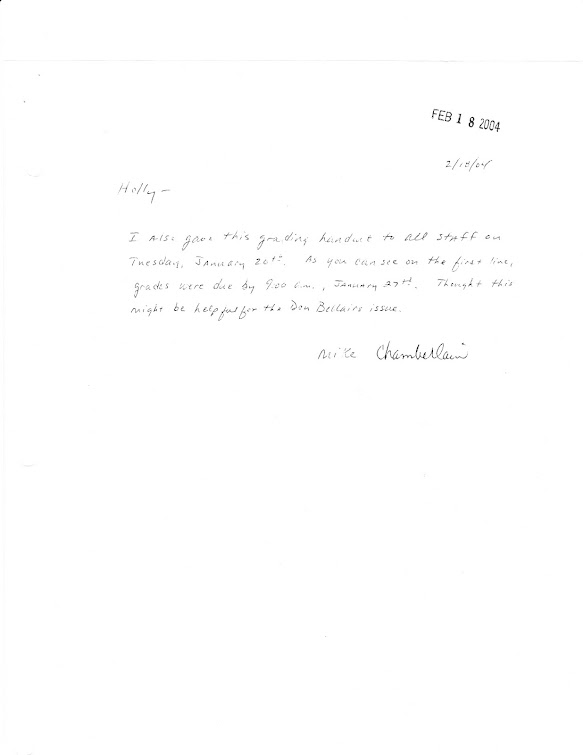 FEB 18 2004
2/18/04
Holly —
I Also gave this grading handout to all staff on
Tuesday, January 20th. As you can see on the first line,
grades were due by 9:00 a.m., January 27th. Thought this
might be helpful for the Don Bellairs issue.
Mike Chamberlain